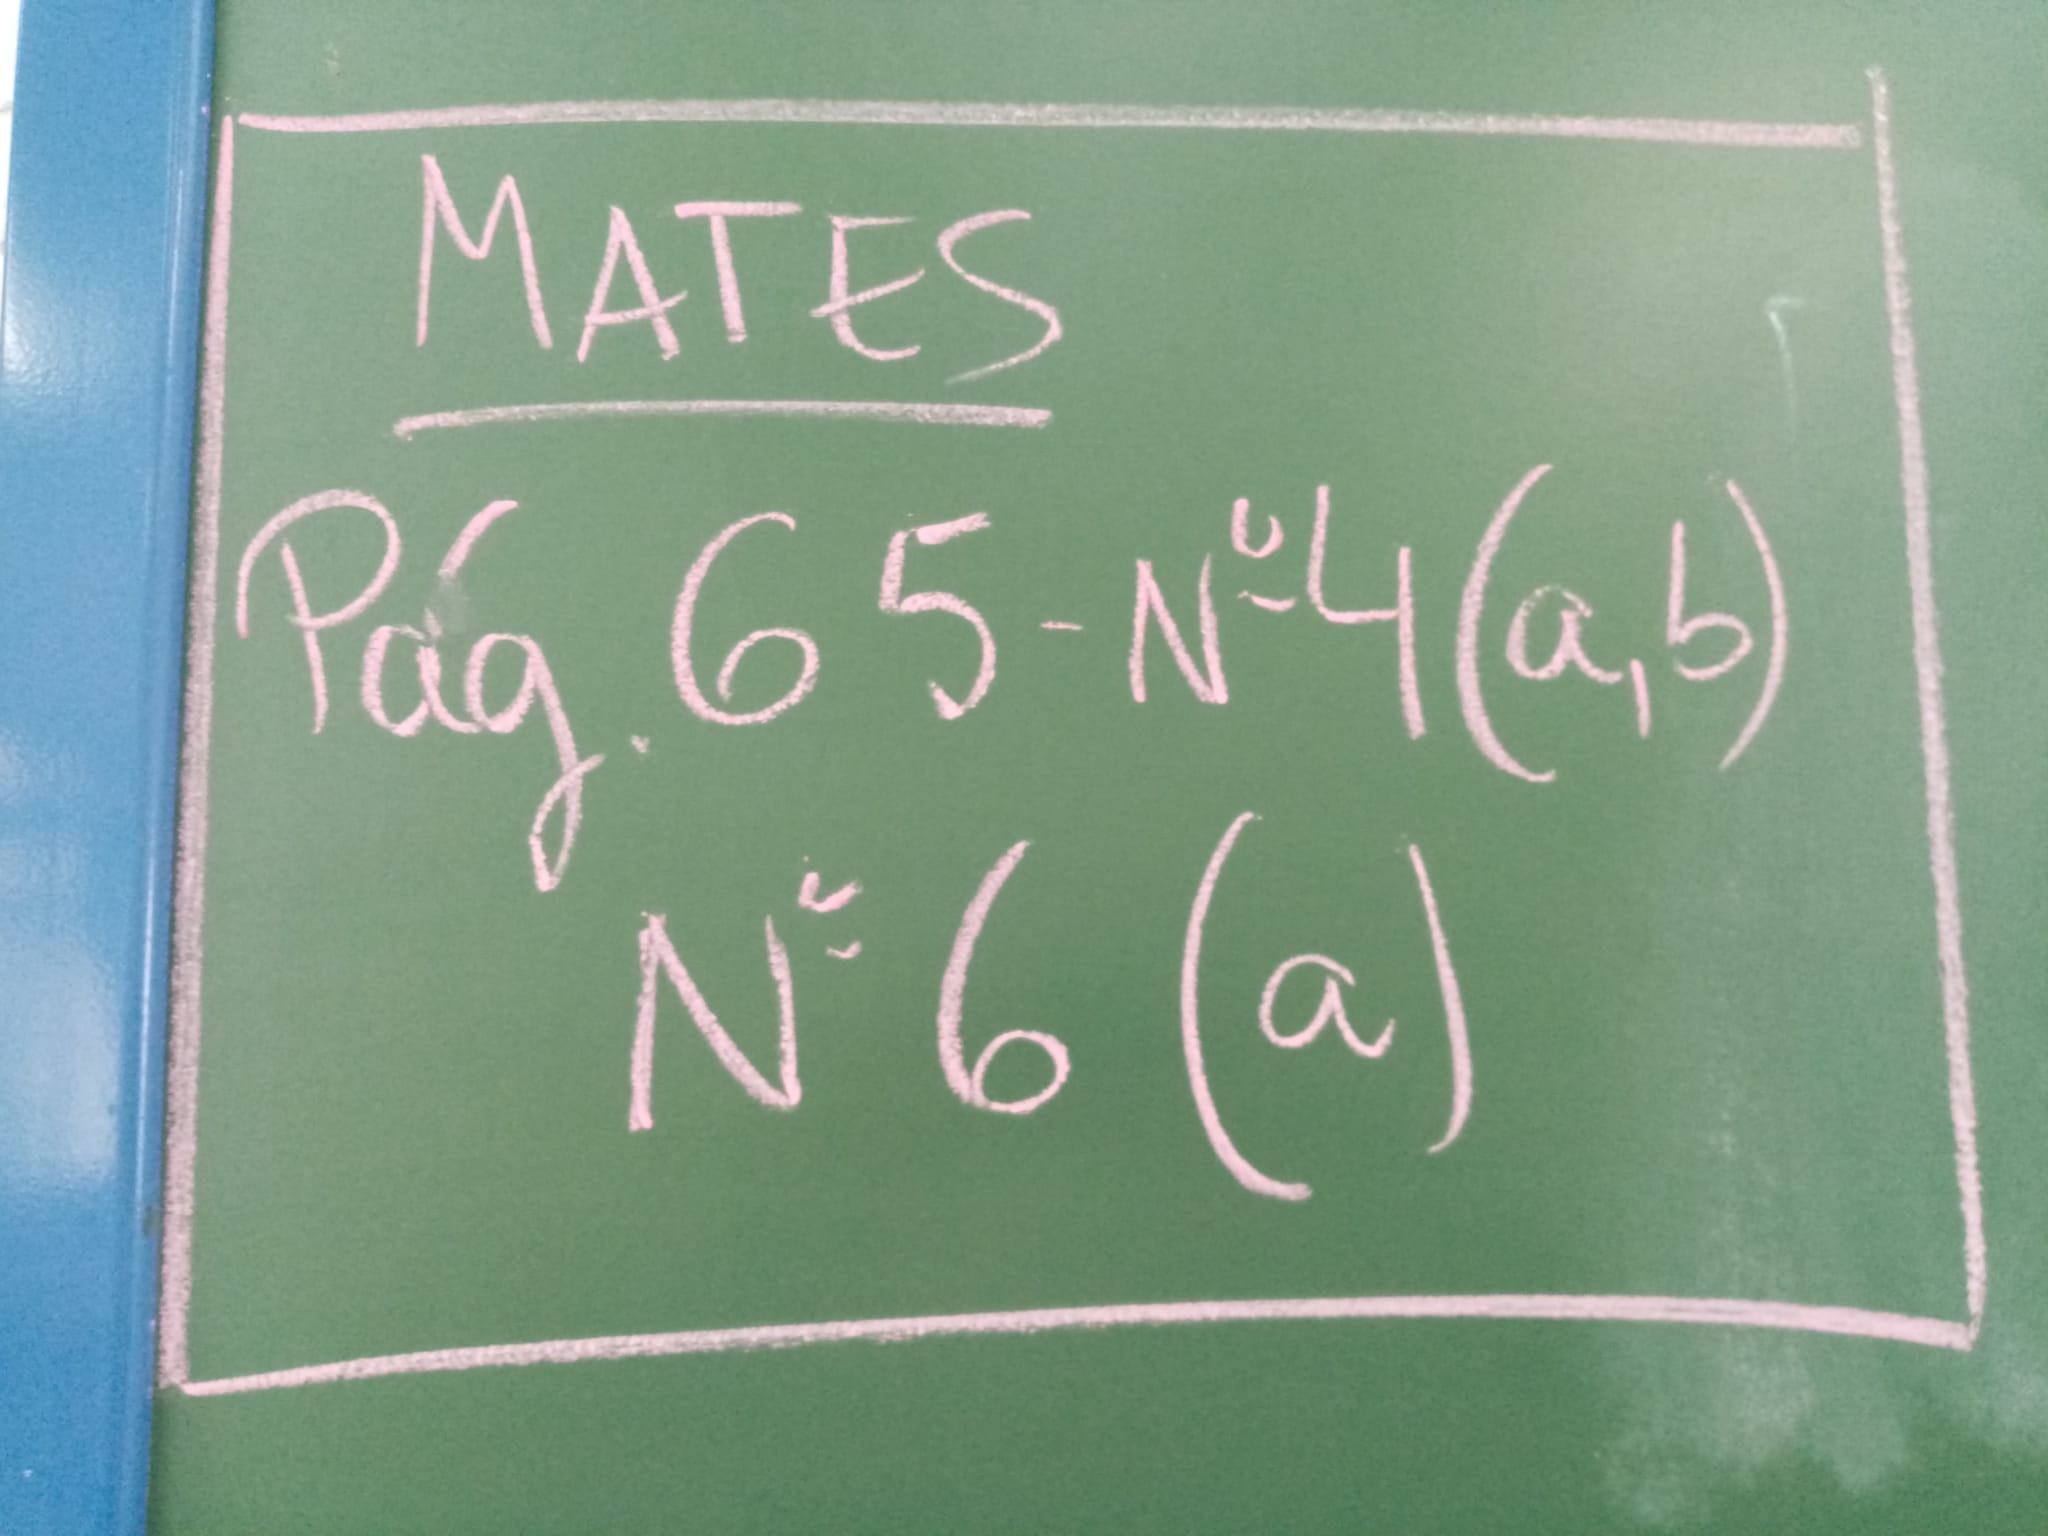 MATES
Pág. 65 - Nº 4 (a, b)
Nº 6 (a)